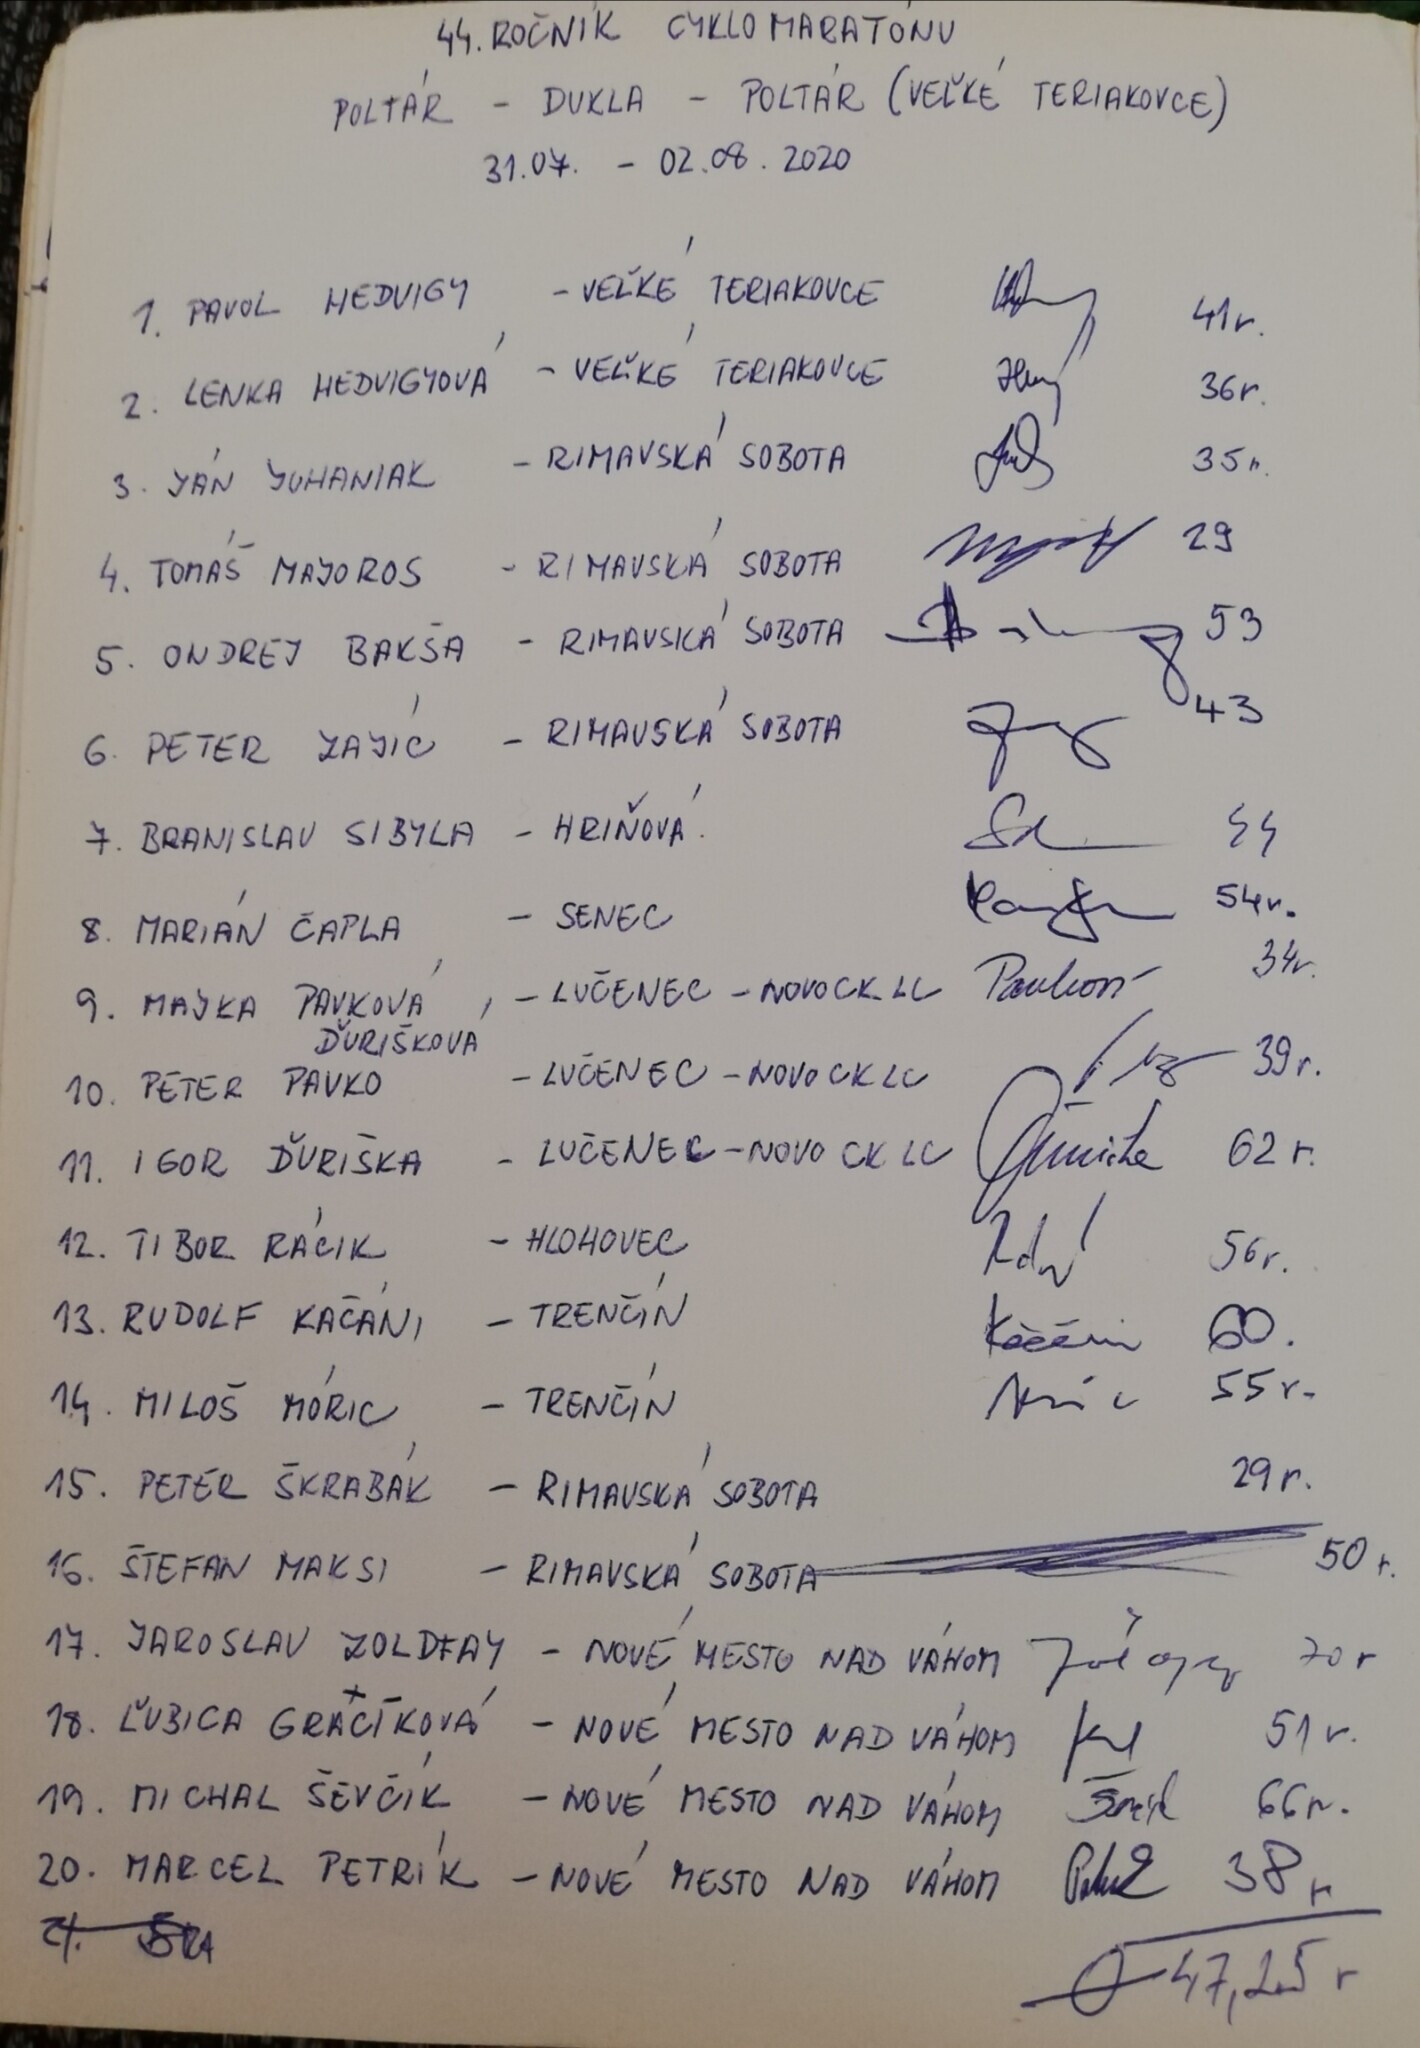 44. ROČNÍK CYKLOMARATÓNU
POLTÁR - DUKLA - POLTÁR (VEĽKÉ TERIAKOVCE)
31.07. - 02.08.2020
1. PAVOL HEDVIGY - VEĽKÉ TERIAKOVCE 41 r.
2. LENKA HEDVIGYOVÁ - VEĽKÉ TERIAKOVCE 36 r.
3. JÁN JUHANIAK - RIMAVSKÁ SOBOTA 35 r.
4. TOMÁŠ MAJOROS - RIMAVSKÁ SOBOTA 29
5. ONDREJ BAKŠA - RIMAVSKÁ SOBOTA 53
6. PETER ZAJÍC - RIMAVSKÁ SOBOTA 43
7. BRANISLAV SIBYLA - HRIŇOVÁ 44
8. MARIÁN ČAPLA - SENEC 54 r.
9. MAJKA PAVKOVÁ, - LUČENEC - NOVO CK LC Pavková 34 r.
ĎURIŠKOVÁ
10. PETER PAVKO - LUČENEC - NOVO CK LC 39 r.
11. IGOR ĎURIŠKA - LUČENEC - NOVO CK LC Ďuriška 62 r.
12. TIBOR RÁCIK - HLOHOVEC 56 r.
13. RUDOLF KAČÁNI - TRENČÍN Kačáni 60.
14. MILOŠ MÓRIC - TRENČÍN 55 r.
15. PETER ŠKRABÁK - RIMAVSKÁ SOBOTA 29 r.
16. ŠTEFAN MAKSI - RIMAVSKÁ SOBOTA 50 r.
17. JAROSLAV ZOLDFAY - NOVÉ MESTO NAD VÁHOM 70 r
18. ĽUBICA GRAČÍKOVÁ - NOVÉ MESTO NAD VÁHOM 51 r.
19. MICHAL ŠEVČÍK - NOVÉ MESTO NAD VÁHOM 66 r.
20. MARCEL PETRÍK - NOVÉ MESTO NAD VÁHOM 38 r
21. ŠKA
Ø 47,25 r